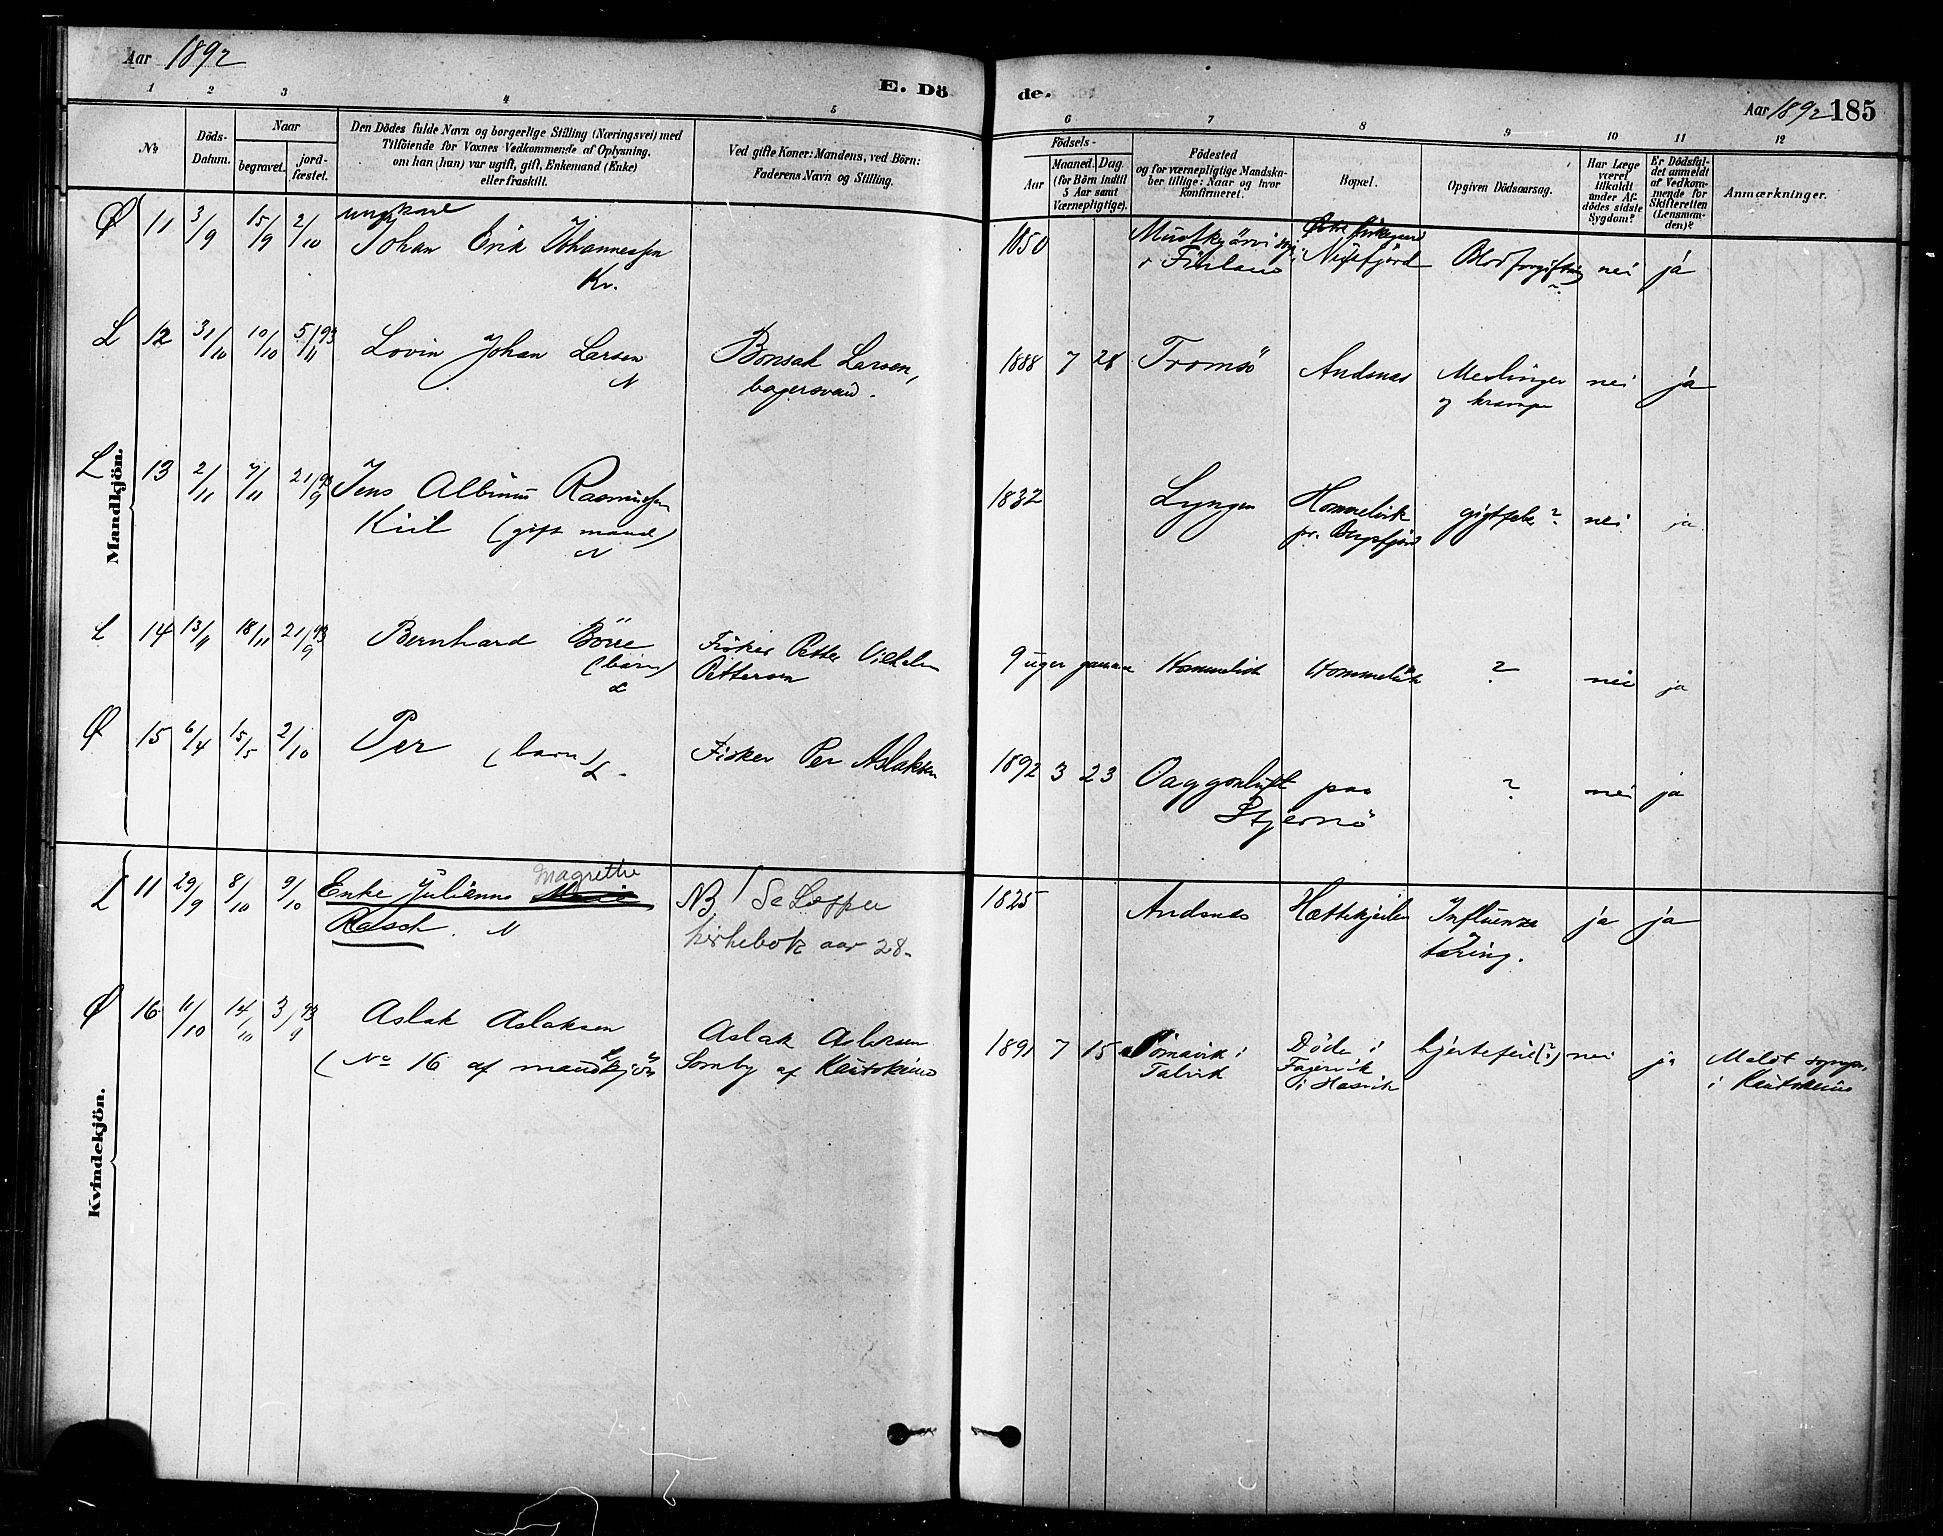 Aar 1892
E. Dö
de.
Aar 1892 185
1 2 3 4 5 6 7 8 9 10 11 12
No
Döds-Datum.
Naar
begravet.
jord-fæstet.
Den Dödes fulde Navn og borgerlige Stilling (Næringsvei) med
Tilföiende for Voxnes Vedkommende af Oplysning,
om han (hun) var ugift, gift, Enkemand (Enke)
eller fraskilt.
Ved gifte Koner: Mandens, ved Börn:
Faderens Navn og Stilling.
Födsels-
Aar
Maaned. Dag.
(for Börn indtil
5 Aar samt
Værnepligtige).
Födested
og for værnepligtige Mandska-
ber tillige: Naar og hvor
konfirmeret.
Bopæl.
Opgiven Dödsaarsag.
Har Læge
været
tilkaldt
under Af-
dödes sidste
Sygdom?
Er Dödsfal-
det anmeldt
af Vedkom-
mende for
Skifteretten
(Lensman-
den)?
Anmærkninger.
Mandkjön.
Ø 11 3/9 15/9 2/10 ungkarl
Johan Erik Johannessen
Kv.
1850 i Finland
Blodforgiftning ? nei ja
L 12 31/10 10/10 5/11 93 Lovin Johan Larsen
N
Bonsak Larsen,
bagersvend.
1888 7 28 Tromsö Andsnæs Meslinger nei ja
og krampe
L 13 2/11 7/11 21/9 93 Jens Albinus Rasmussen
Kiil (gift mand)
N
1832 Lyngen Hommelvik gigtfeber ? nei ja
pr. Bergsfjord
L 14 13/11 18/11 21/9 93 Bernhard
(barn)
Fisker Petter Vilhelm
Pettersen
9 uger gammel Hommelvik Hommelvik ? nei ja
Ø 15 6/4 15/5 2/10 Per (barn) L.
Fisker Per Aslaksen
1892 3 23 paa ? nei ja
Stjernö
Kvindekjön.
L 11 29/9 8/10 9/10 Enke Julianna Magrethe
Rasch. N
NB! Se Loppa
kirkebok aar 28.
1825 Andsnæs Influenza ja ja
tæring.
Ø 16 11/10 14/10 3/9 93 Aslak Aslaksen
(No 16 af mandkjön
Aslak Aslaksen
Somby af Kautokeino
1891 7 15 i
Talvik
Døde i
Fagervik
i Hasvik
hjertefeil (?) nei ja Meldt sogn.
i Kautokeino